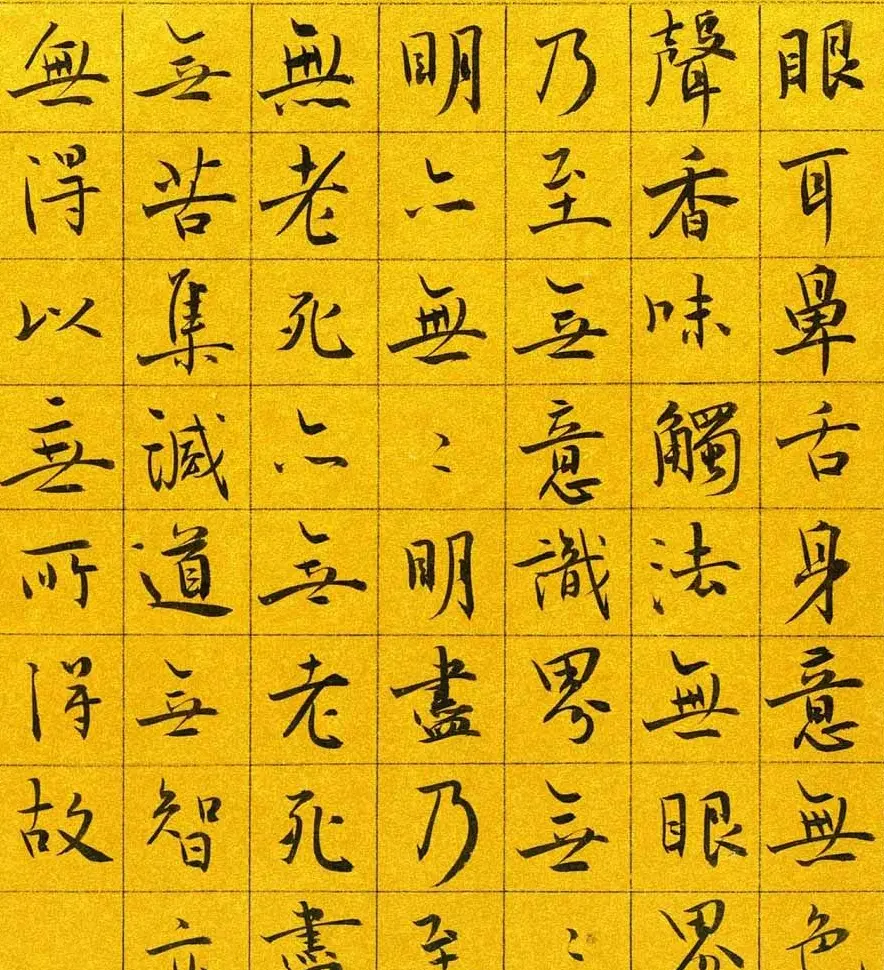 眼耳鼻舌身意無色
聲香味觸法無眼界
乃至無意識界無〻
明亦無〻明盡乃至
無老死亦無老死盡
無苦集滅道無智亦
無得以無所得故